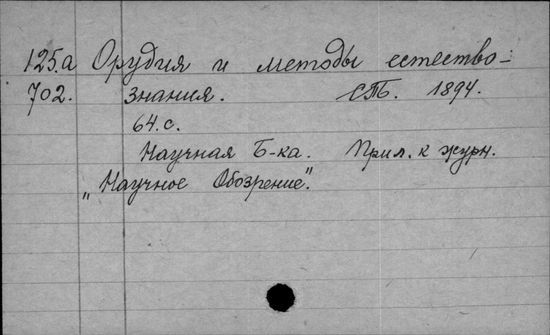 125.а Орудия и методы естество-
702. знания. СПб. 1894.
64.с.
Научная Б-ка. Прил. к журн.
„Научное Обозрение".